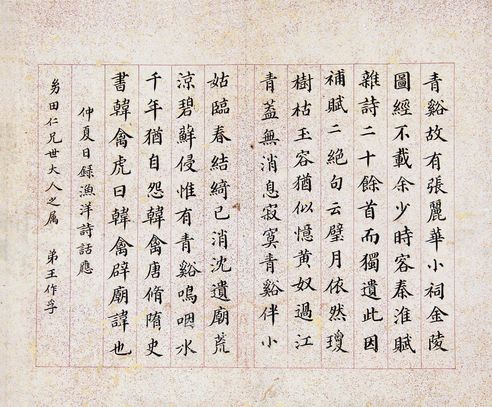 青谿故有張麗華小祠金陵
圖經不載余少時客秦淮賦
雜詩二十餘首而獨遺此因
補賦二絕句云璧月依然瓊
樹枯玉容猶似憶黃奴過江
青蓋無消息寂寞青谿伴小
姑臨春結綺已消沈遺廟荒
涼碧蘚侵惟有青谿鳴咽水
千年猶自怨韓禽唐脩隋史
書韓禽虎曰韓禽辟廟諱也
仲夏日錄漁洋詩話應
芴田仁兄世大人之属 弟王作孚